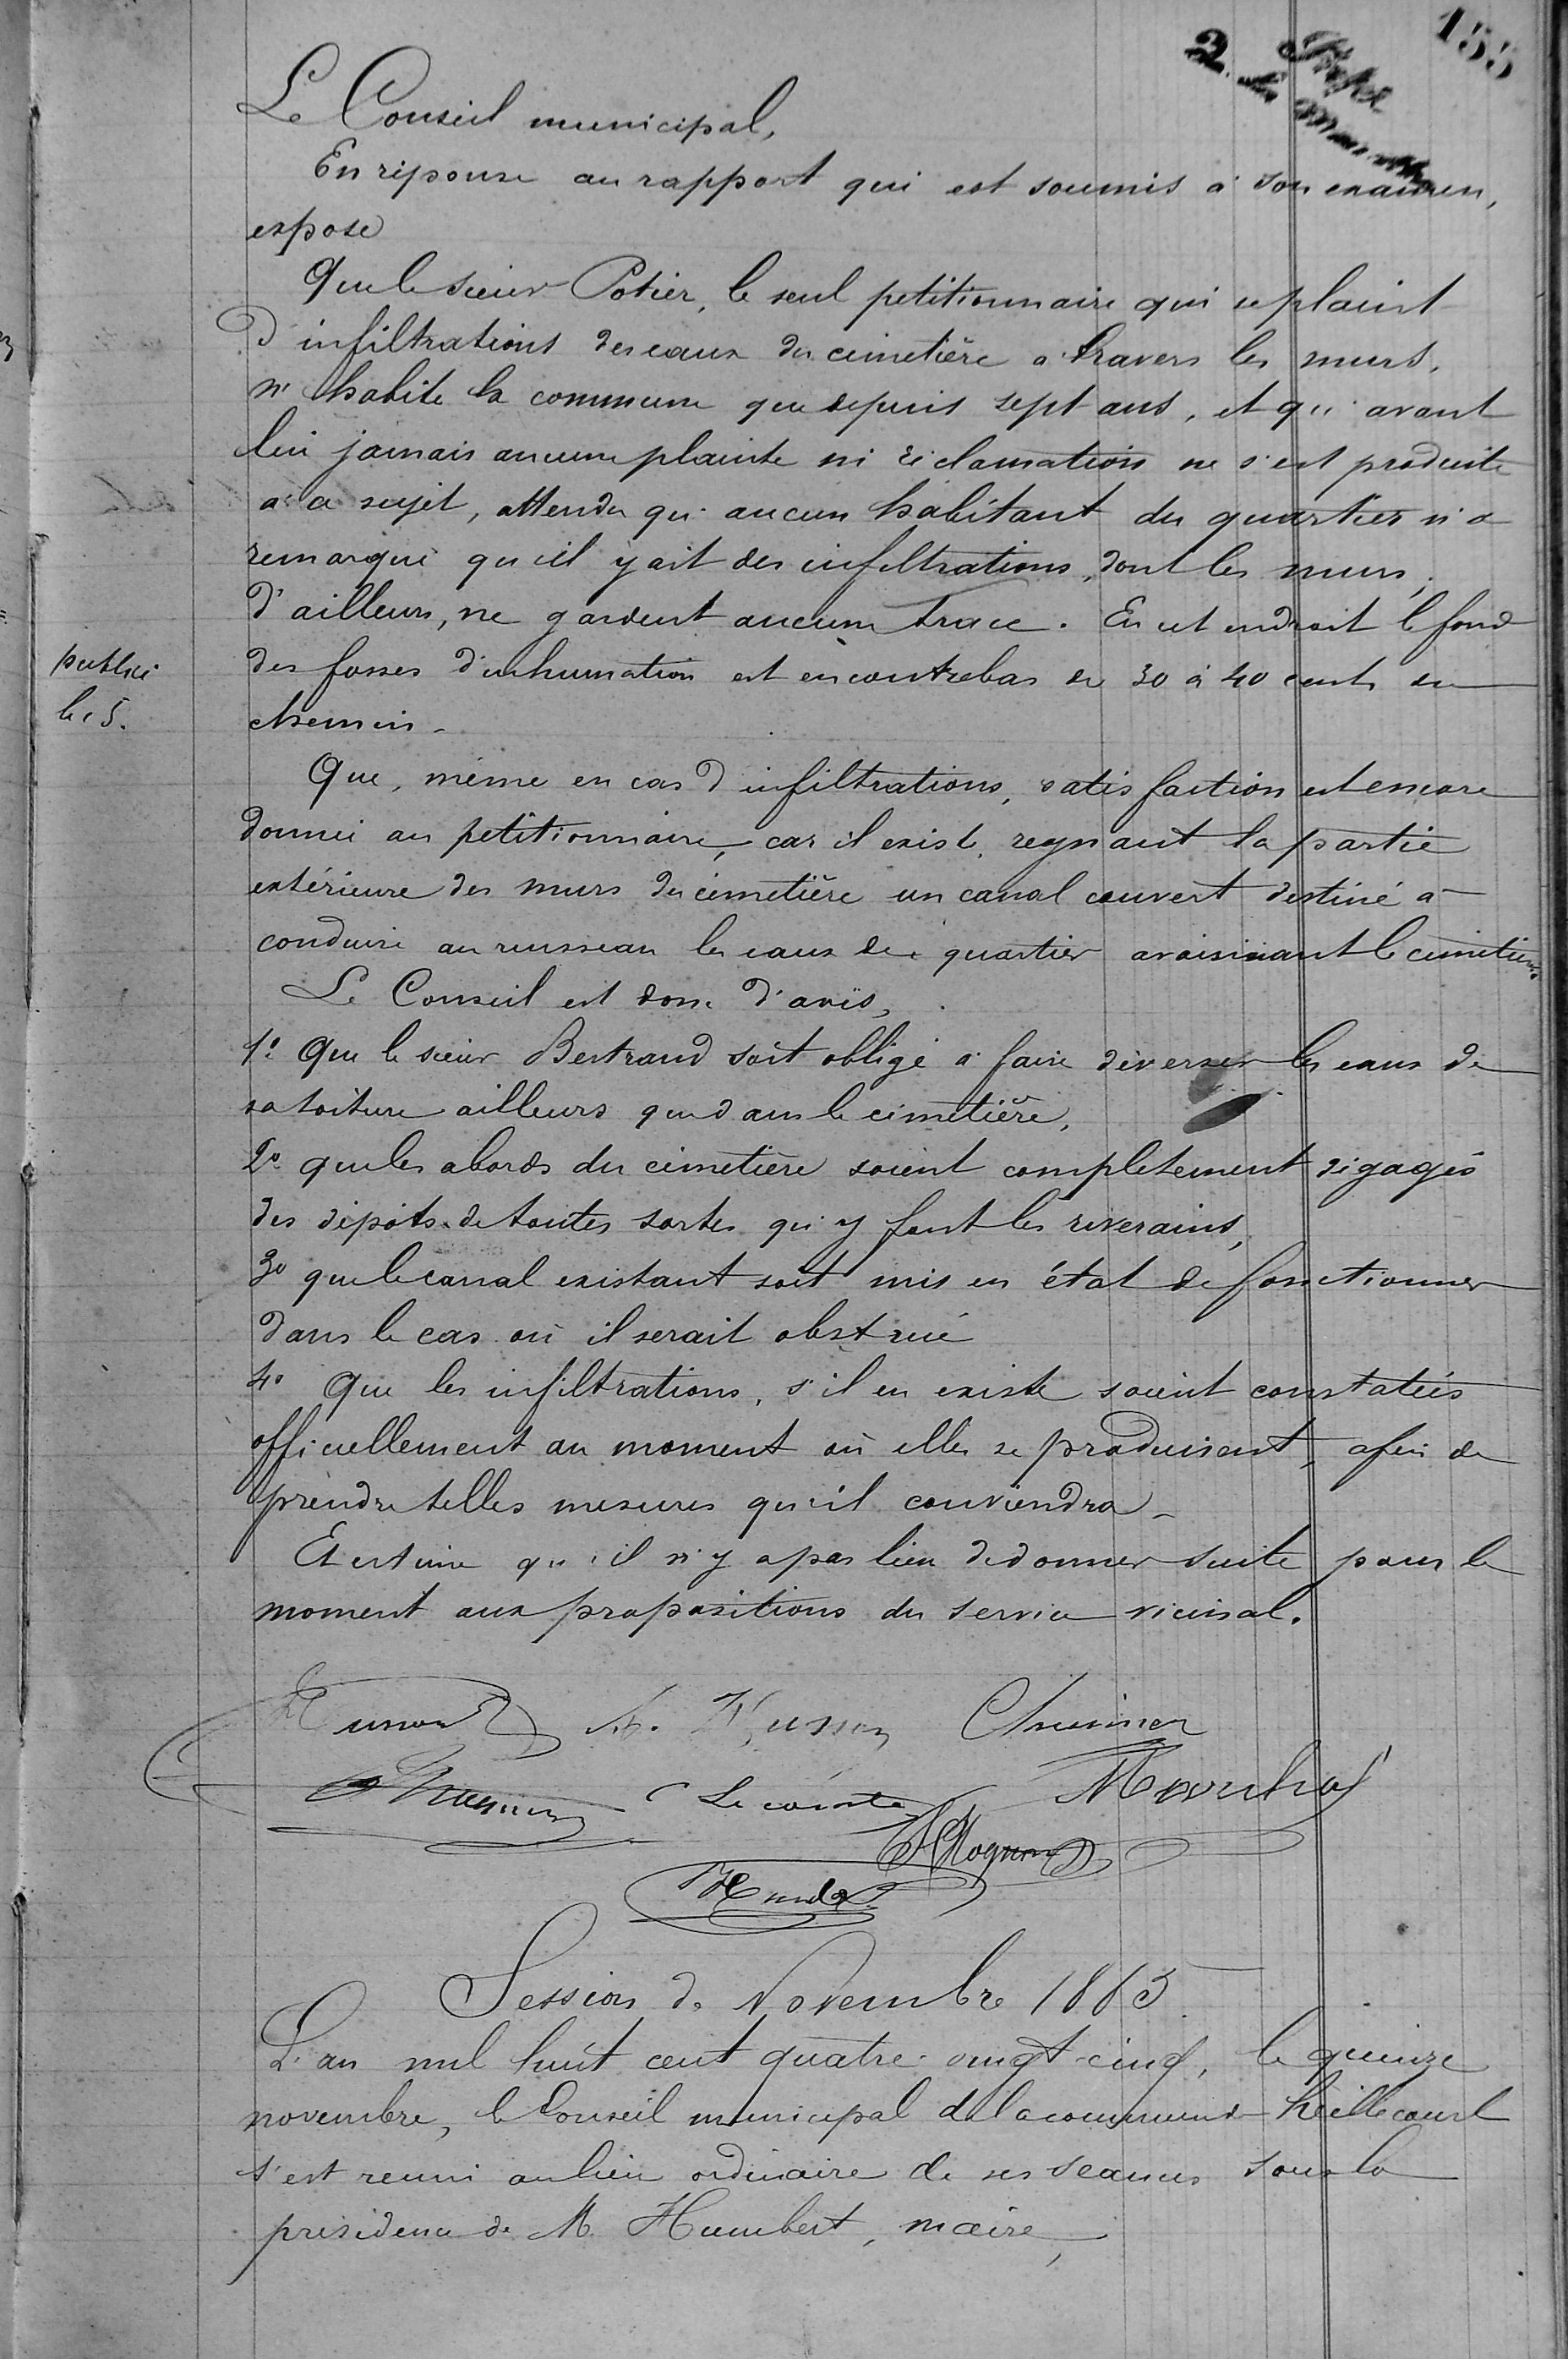 155
2
Le Conseil municipal,
En réponse au rapport qui est soumis à son examen,
expose
Que le sieur Potier, le seul petitionnaire qui se plaint
d'infiltrations des eaux du cimetière à travers les murs,
n'habite la commune que depuis sept ans, et qu'avant
lui jamais aucune plainte ni réclamation ne s'est produite
à ce sujet, attendu qu'aucun habitant du quartier n'a
remarqué qu'il y ait des infiltrations, dont les murs,
d'ailleurs, ne gardent aucune trace. En cet endroit le fond
des fosses d'inhumation est en contrebas de 30 à 40 cent. du
chemin.
Que, même en cas d'infiltrations, satisfaction est encore
donnée au petitionnaire, car il existe, regnant la partie
extérieure des murs du cimetière un canal couvert destiné à
conduire au ruisseau les eaux du quartier avoisinant le cimetière
Le Conseil est donc d'avis,
1° Que le sieur Bertrand soit obligé à faire déverser les eaux de
sa toiture ailleurs que dans le cimetière,
2° que les abords du cimetière soient complètement dégagés
des dépots de toutes sortes qu'y font les riverains,
3° que le canal existant soit mis en état de fonctionner
dans le cas où il serait obstrué
4° Que les infiltrations, s'il en existe soient constatées
officiellement au moment où elles se produisent, afin de
prendre telles mesures qu'il conviendra.
Et estime qu'il n'y a pas lieu de donner suite pour le
moment aux propositions du service vicinal.
Lecomte
Session de Novembre 1885
L'an mil huit cent quatre-vingt-cinq, le quinze
novembre, le Conseil municipal de la commune de Heillecourt
s'est reuni au lieu ordinaire de ses seances sous la
présidence de M. Humbert, maire,
publié
le 5.